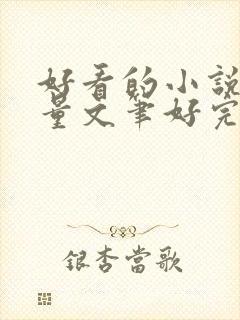 好看的小說
量文筆好完
銀杏當歌